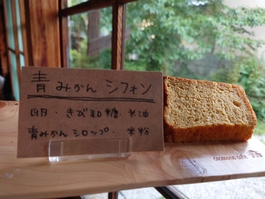 青みかん シフォン
卵・きび砂糖・米油
青みかんシロップ・米粉